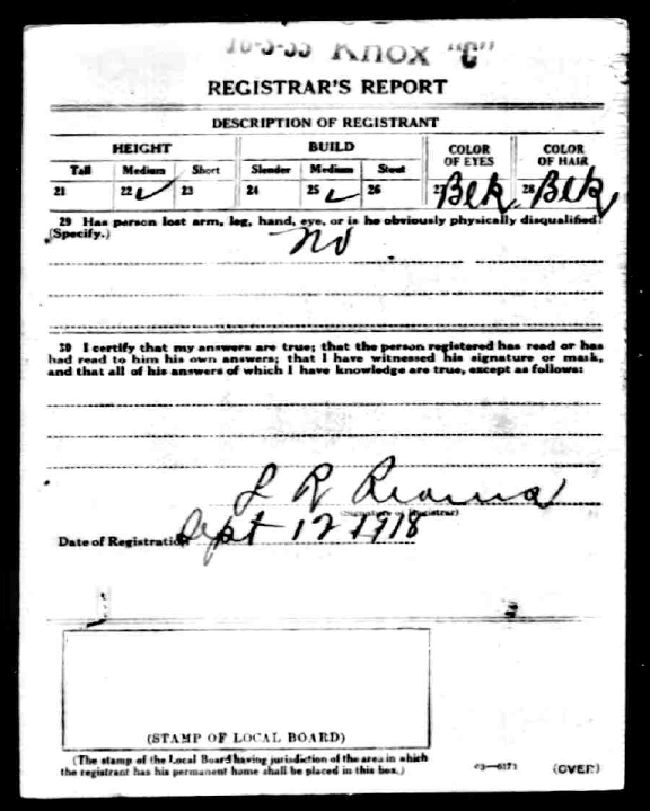 Knox "C"
REGISTRAR'S REPORT
DESCRIPTION OF REGISTRANT
HEIGHT BUILD COLOR OF EYES COLOR OF HAIR
Tall Medium Short Slender Medium Stout
21 22 ✓ 23 24 25 ✓ 26 27 Blk 28 Blk
29 Has person lost arm, leg, hand, eye, or is he obviously physically disqualified?
(Specify.)
No
30 I certify that my answers are true; that the person registered has read or has
had read to him his own answers; that I have witnessed his signature or mark,
and that all of his answers of which I have knowledge are true, except as follows:
L R
(Signature of Registrar)
Date of Registration Sept 12 1918
(STAMP OF LOCAL BOARD)
(The stamp of the Local Board having jurisdiction of the area in which
the registrant has his permanent home shall be placed in this box.)
(OVER)